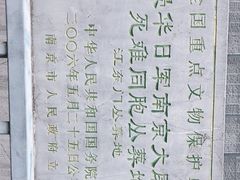 全国重点文物保护
侵华日军南京大屠
死难同胞丛葬地
江东门丛葬地
中华人民共和国国务院
二〇〇六年五月二十五日公
南京市人民政府立